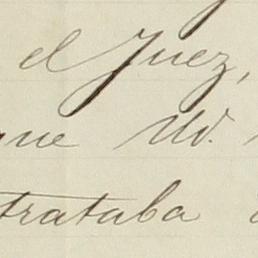 el Juez,
que Ud.
trataba